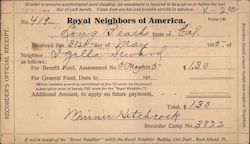 In order to preserve uninterrupted good standing, an assessment is required to be paid on or before the last day of each month. Camp dues are due and payable strictly in advance.
2 00
No. 419
Royal Neighbors of America.
Form 140
Long Beach State of Cal
Received this 31st day of May 191
of
For Benefit Fund, Assessment No. May $ 1.30
For General Fund, Dues to 191 $
Additional Amount, to apply on future payments, $
Total, $ 1.30
Minnie Hitchcock
Recorder Camp No. 3872
If not in receipt of the "Royal Neighbor" notify the Royal Neighbor Mailing List Dept., Rock Island, Ill.
RECORDER'S OFFICIAL RECEIPT.